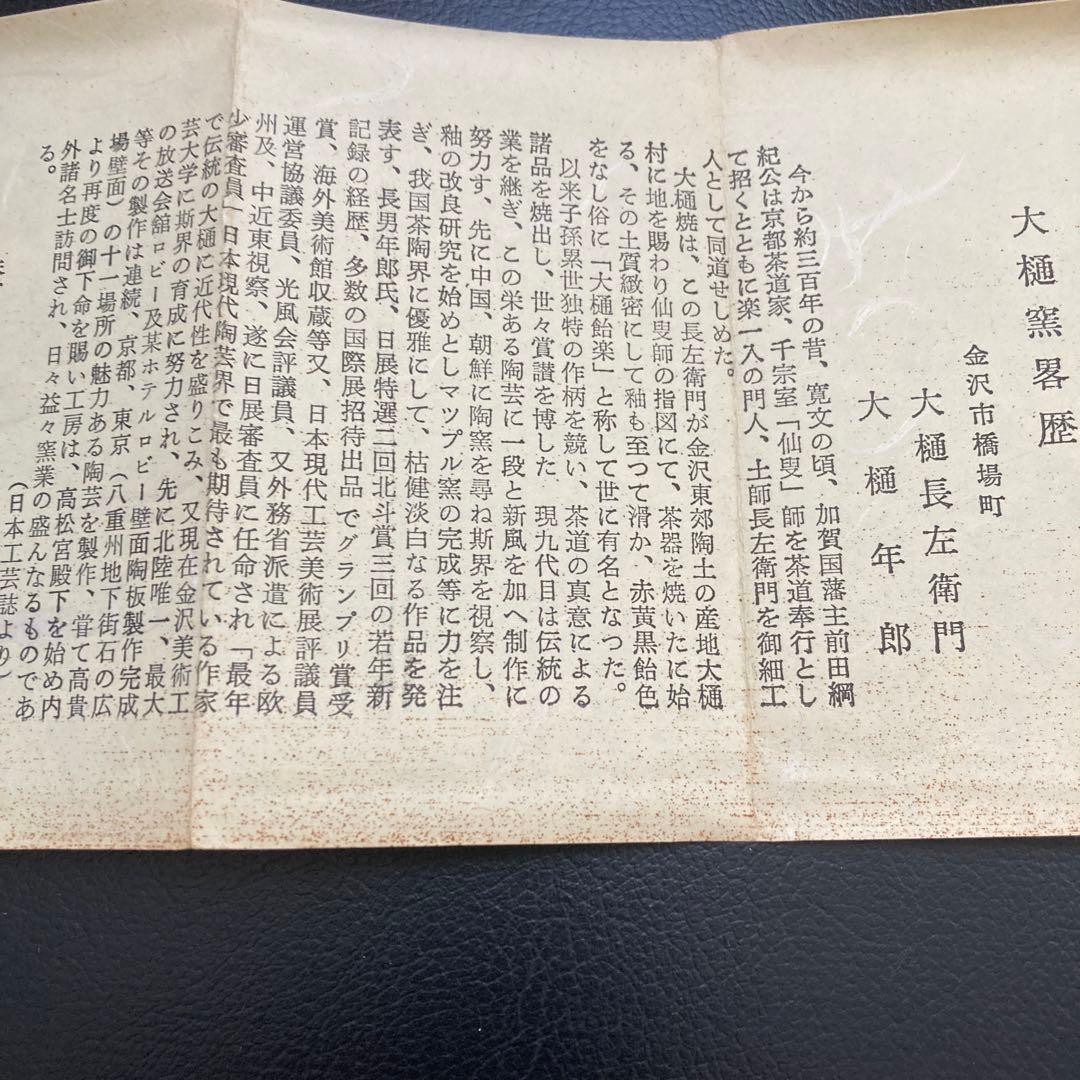 大樋窯畧歴
金沢市橋場町
大樋長左衛門
大樋年郎
今から約三百年の昔、寛文の頃、加賀国藩主前田綱
紀公は京都茶道家、千宗室「仙叟」師を茶道奉行とし
て招くとともに楽一入の門人、土師長左衛門を御細工
人として同道せしめた。
大樋焼は、この長左衛門が金沢東郊陶土の産地大樋
村に地を賜わり仙叟師の指図にて、茶器を焼いたに始
る、その土質緻密にして釉も至つて滑か、赤黄黒飴色
をなし俗に「大樋飴楽」と称して世に有名となつた。
以来子孫累世独特の作柄を競い、茶道の真意による
諸品を焼出し、世々賞讃を博した 現九代目は伝統の
業を継ぎ、この栄ある陶芸に一段と新風を加へ制作に
努力す、先に中国、朝鮮に陶窯を尋ね斯界を視察し、
釉の改良研究を始めとしマツプル窯の完成等に力を注
ぎ、我国茶陶界に優雅にして、枯健淡白なる作品を発
表す、長男年郎氏、日展特選二回北斗賞三回の若年新
記録の経歴、多数の国際展招待出品でグランプリ賞受
賞、海外美術館収蔵等又、日本現代工芸美術展評議員
運営協議委員、光風会評議員、又外務省派遣による欧
州及、中近東視察、遂に日展審査員に任命され「最年
少審査員」日本現代陶芸界で最も期待されている作家
で伝統の大樋に近代性を盛りこみ、又現在金沢美術工
芸大学に斯界の育成に努力され、先に北陸唯一、最大
の放送会舘ロビー及某ホテルロビー壁面陶板製作完成
等その製作は連続、京都、東京(八重州地下街石の広
場壁面)の十一場所の魅力ある陶芸を製作、嘗て高貴
より再度の御下命を賜い工房は、高松宮殿下を始め内
外諸名士訪問され、日々益々窯業の盛んなるものであ
る。
(日本工芸誌より)